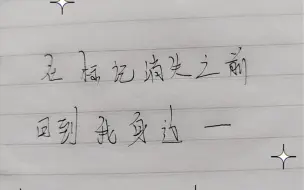 在标记消失之前
回到我身边一